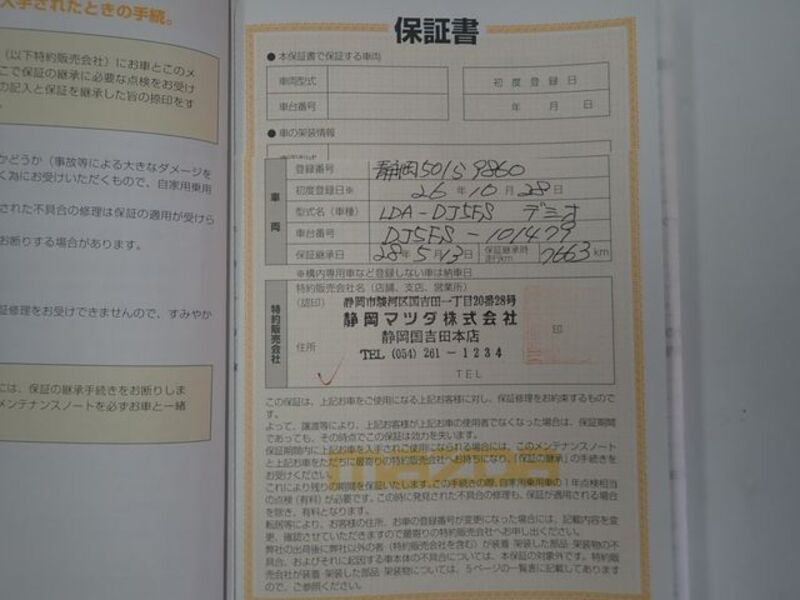 入手されたときの手続。
(以下特約販売会社)にお車とこのメ
こで保証の継承に必要な点検をお受け
の記入と保証を継承した旨の捺印をす
かどうか(事故等による大きなダメージを
く為にお受けいただくもので、自家用乗用
された不具合の修理は保証の適用が受けら
お断りする場合があります。
証修理をお受けできませんので、すみやか
には、保証の継承手続きをお断りしま
メンテナンスノートを必ずお車と一緒
保証書
● 本保証書で保証する車両
車両型式
初度登録日
車台番号
年 月 日
● 車の架装情報
車両
登録番号 静岡501ら9860
初度登録日※ 26年10月28日
型式名(車種) LDA-DJ5FS デミオ
車台番号 DJ5FS-101479
保証継承日 28年5月13日 保証継承時走行km 7663km
※構内専用車など登録しない車は納車日
特約販売会社
特約販売会社名(店舗、支店、営業所)
(認印) 静岡市駿河区国吉田一丁目20番28号
静岡マツダ株式会社
印
静岡国吉田本店
住所
TEL (054) 261-1234
TEL
この保証は、上記お車をご使用になる上記お客様に対し、保証修理をお約束するもので
す。
よって、譲渡等により、上記お客様が上記お車の使用者でなくなった場合は、保証期間
であっても、その時点でこの保証は効力を失います。
保証期間内に上記お車を入手されご使用になられる場合には、このメンテナンスノート
と上記お車をただちに最寄りの特約販売会社へお持ちになり、「保証の継承」の手続きを
お受けください。
これにより残りの期間を保証いたします。この手続きの際、自家用乗用車の1年点検相当
の点検(有料)が必要です。この時に発見された不具合の修理も、保証が適用される場合
を除き、有料となります。
転居等により、お客様の住所、お車の登録番号が変更になった場合には、記載内容を変
更、確認させていただきますので最寄りの特約販売会社へお申し出ください。
弊社の出荷後に弊社以外の者(特約販売会社を含む)が装着・架装した部品・架装物の不
具合、およびそれに起因する車本体の不具合については、本保証の対象外です。特約販
売会社が装着・架装した部品・架装物については、5ページの一覧表に記載してあります
ので、ご参照ください。